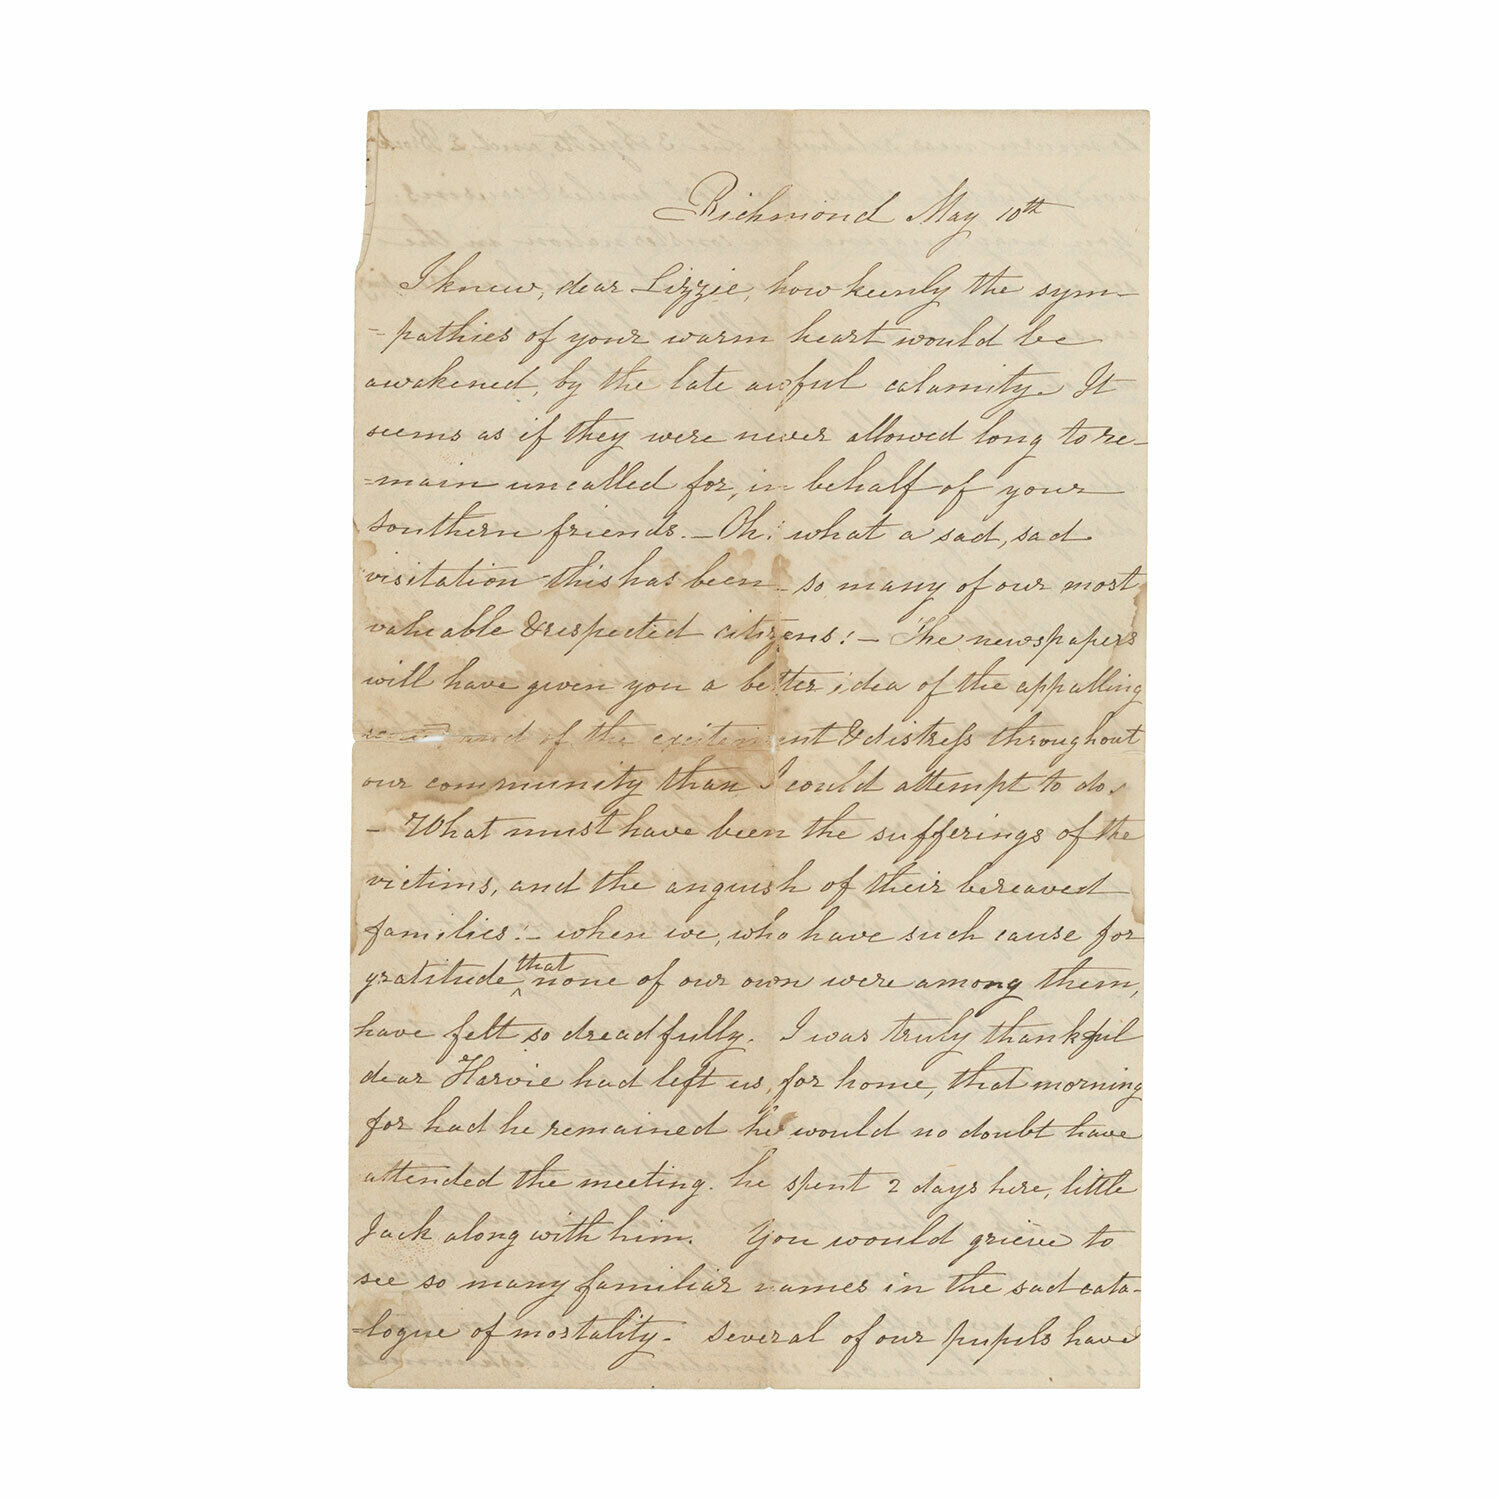 Richmond May 10th
I knew, dear Lizzie, how keenly the sym-
-pathies of your warm heart would be
awakened, by the late awful calamity. It
seems as if they were never allowed long to re-
-main uncalled for, in behalf of your
Southern friends. - Oh! what a sad, sad
visitation this has been - so many of our most
valuable & respected citizens! - The newspapers
will have given you a better idea of the appalling
and of the excitement & distress throughout
our community than I could attempt to do.
- What must have been the sufferings of the
victims, and the anguish of their bereaved
families! - when we, who have such cause for
gratitude that none of our own were among them,
have felt so dreadfully. I was truly thankful
dear Harvie had left us, for home, that morning
for had he remained he would no doubt have
attended the meeting. he spent 2 days here, little
Jack along with him. You would grieve to
see so many familiar names in the sad cata-
-logue of mortality. Several of our pupils have